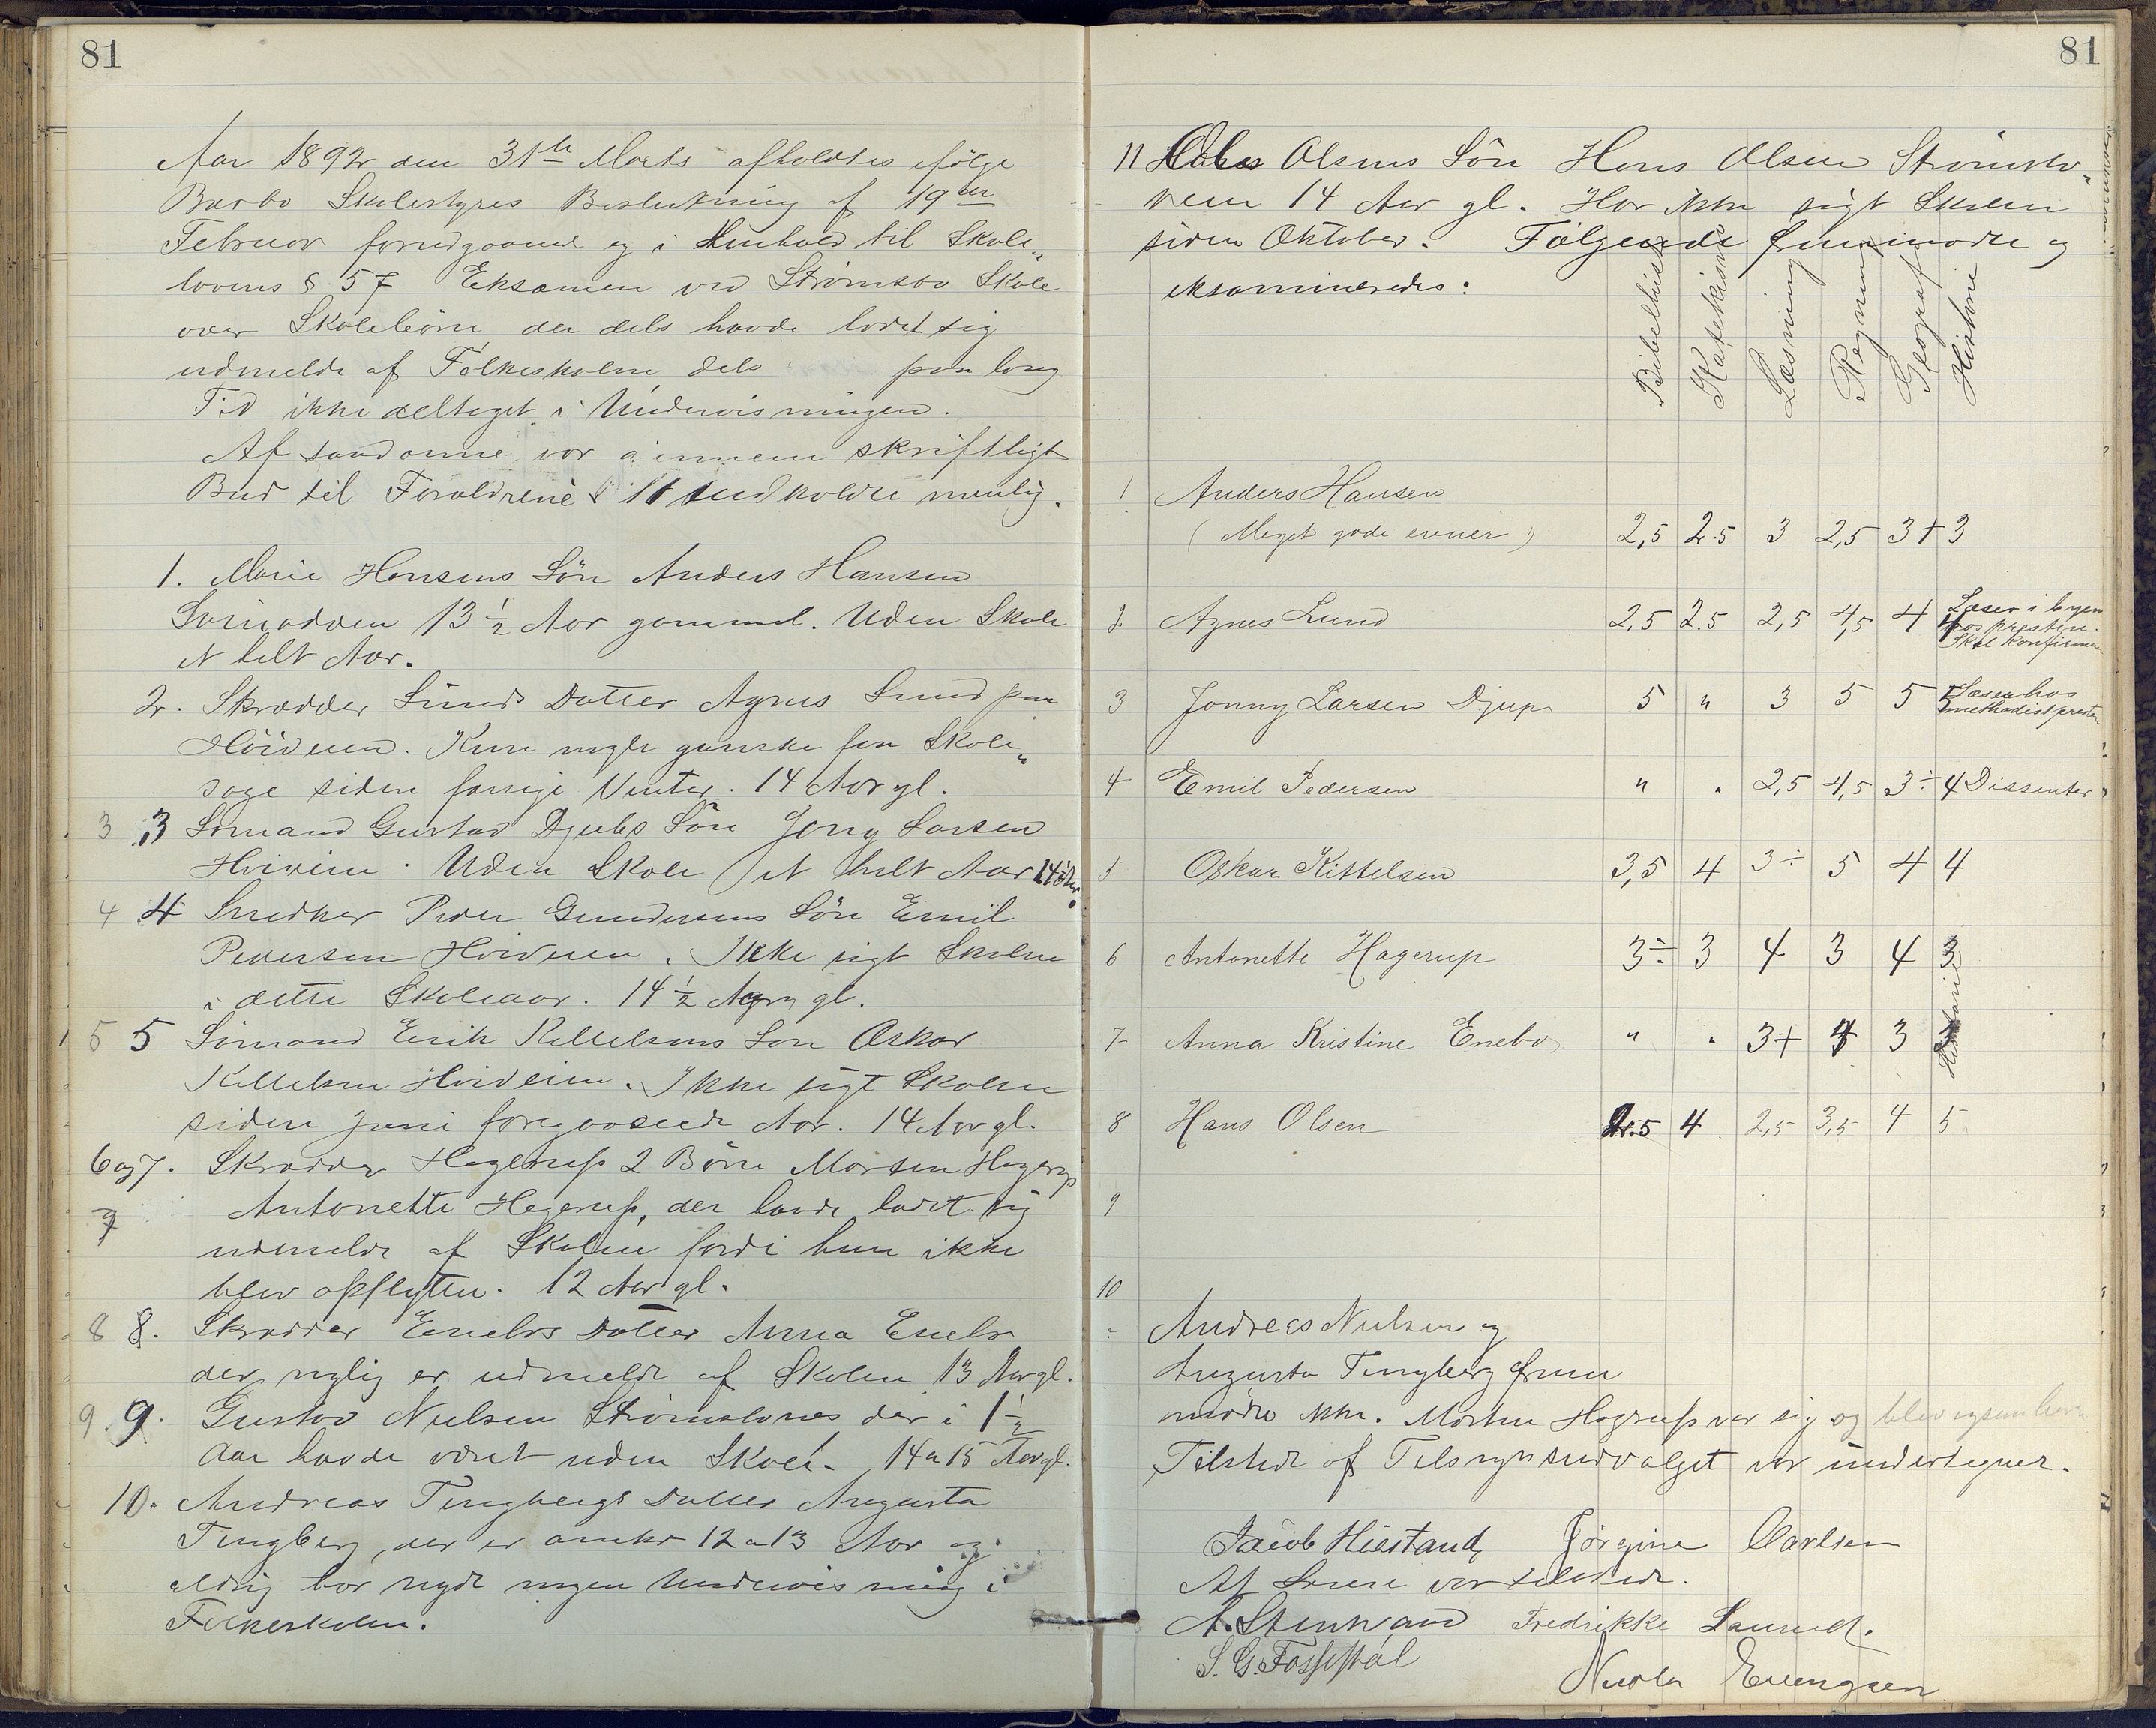 81
Aar 1892 den 31te Marts afholdtes ifølge
Barbo Skolestyres Beslutning af 19de
Februar forudgaaende og i Henhold til Skole„
lovens § 57 Eksamen ved Strømsbo Skole
over Skolebørn der dels havde ladet sig
udmelde af Folkeskolen dels paa lang
Tid ikke deltaget i Undervisningen.
Af saadanne var gjennem skriftligt
Bud til Forældrene 11 indkaldte nemlig.
1. Marie Hansens Søn Anders Hansen
13 1/2 Aar gammel. Uden Skole
et helt Aar.
2. Skrædder Lunds Datter Agnes Lund paa
Höiveien. Kun nogle ganske faa Skole„
dage siden forrige Vinter. 14 Aar gl.
3 3 Sömand Gustav Djubs Søn Jony Larsen
Höiveien. Uden Skole et helt Aar 14
4 4 Snedker Peder Gundersens Søn Emil
Pedersen Höiveien. Ikke sögt Skolen
i dette Skoleaar. 14 1/2 Aar gl.
5 5 Sömand Erik Kittelsens Søn Oskar
Kittelsen Höiveien. Ikke sögt Skolen
siden Juni foregaaende Aar. 14 Aar gl.
6 og 7. Skrædder Hagerups 2 Børn Morten Hagerup
7 Antonette Hagerup, der havde ladet sig
udmelde af Skolen fordi hun ikke
blev opflyttet. 12 Aar gl.
8 8. Skrædder Enebos Datter Anna Enebo
der nylig er udmeldt af Skolen 13 Aar gl.
9. 9. Gustav Nielsen der i 1 1/2
Aar havde været uden Skole. 14 a 15 Aar gl.
10. Andreas Tengbergs Datter Augusta
Tengberg, der er omkr 12 a 13 Aar og
aldrig har nydt nogen Undervisning i
Folkeskolen.
81
11 Olsens Søn Hans Olsen Strömsbo„
veien 14 Aar gl. Har ikke sögt Skolen
siden Oktober. Følgende fremmødte og
eksamineredes:
Bibelhist Katekisme Læsning Regning Geograf Historie
1 Anders Hansen
(Meget gode evner) 2,5 2.5 3 2,5 3+ 3
2 Agnes Lund 2,5 2.5 2,5 4,5 4 4 Læser i byen
hos presten.
Skal konfirmeres
3 Jonny Larsen Djup 5 " 3 5 5 5 Læser hos
methodistpresten
4 Emil Pedersen " " 2,5 4,5 3÷ 4 Dissenter
5 Oskar Kittelsen 3,5 4 3÷ 5 4 4
6 Antonette Hagerup 3÷ 3 4 3 4 3
7 Anna Kristine Enebo " " 3+ 4 3 Historie
8 Hans Olsen 2.5 4 2,5 3,5 4 5
9
10
Andreas Nielsen og
Augusta Tengberg frem
mødte ikke. Morten Hagerup var syg og blev
Tilstede af Tilsynsudvalget var undertegnet.
Jacob Hiestand, Jörgine Carlsen
Af Lærere var tilstede.
A. Stenvand Fredrikke Laurud.
S. G. Fossestøl
Nicola Evensen